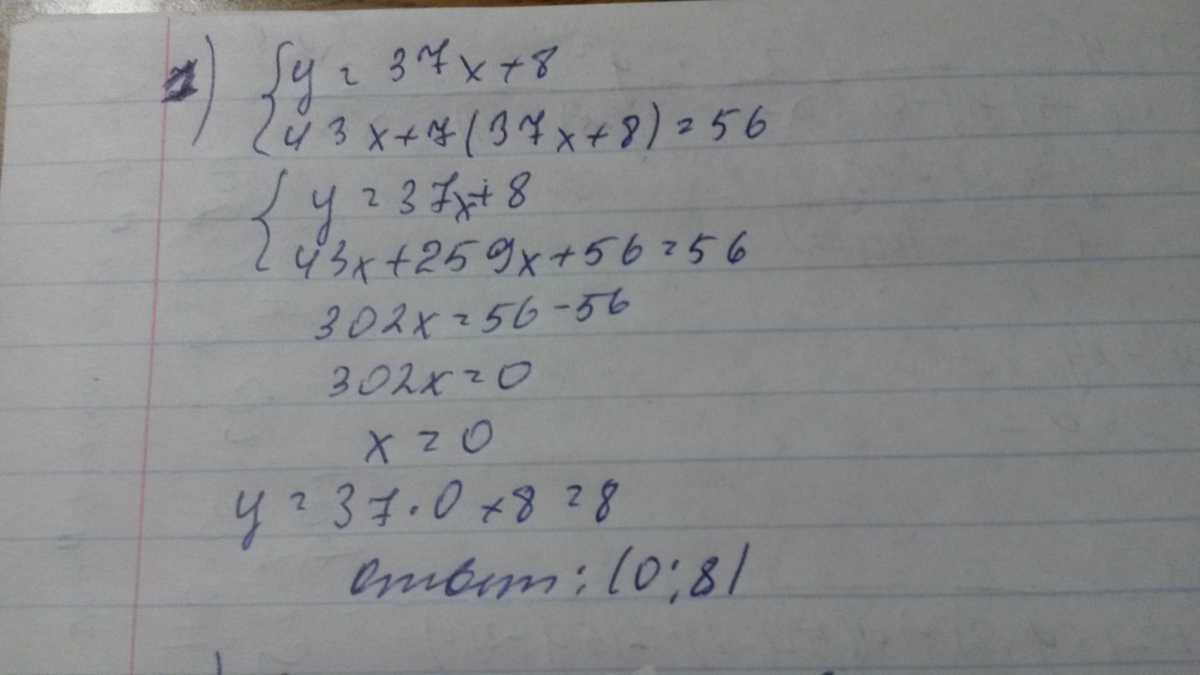 1) { y = 37x + 8
43x + 7(37x + 8) = 56
{ y = 37x + 8
43x + 259x + 56 = 56
302x = 56 - 56
302x = 0
x = 0
y = 37 · 0 + 8 = 8
ответ: (0; 8)